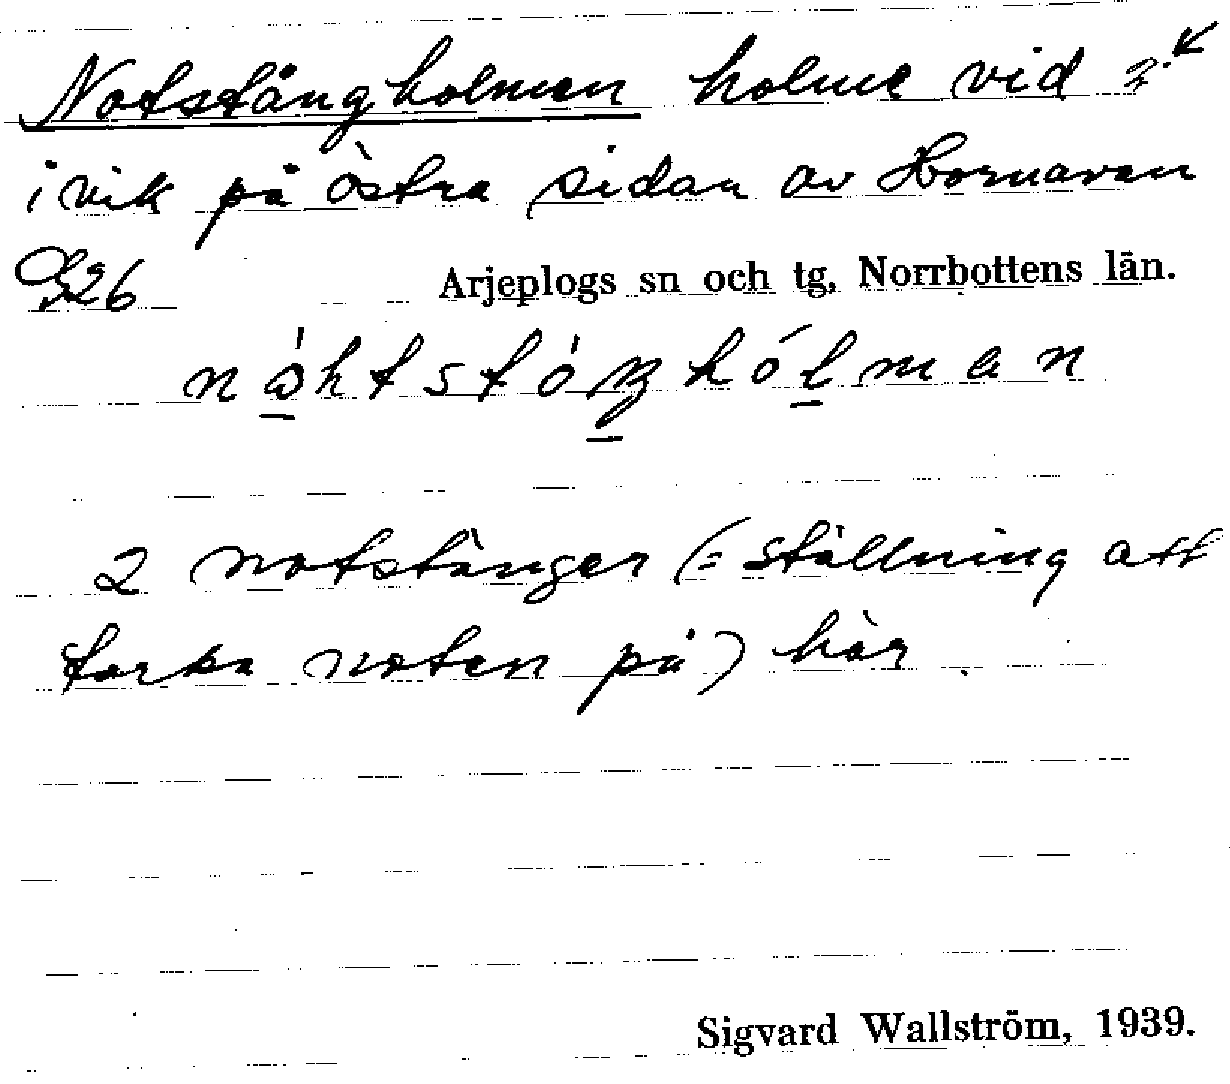 Notstångholmen holme vid 2.
i vik på östra sidan av Hornavan
S26 Arjeplogs sn och tg, Norrbottens län.
2 notstänger (= ställning att
torka noten på) här.
Sigvard Wallström, 1939.